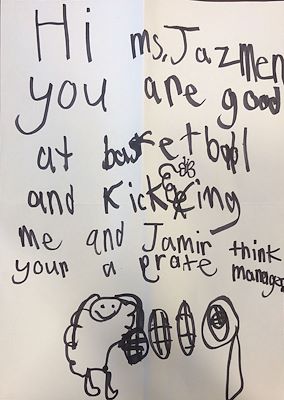 Hi ms. Jazmen
you are good
at basketball
and kickcking
me and Jamir think
your a grate manager